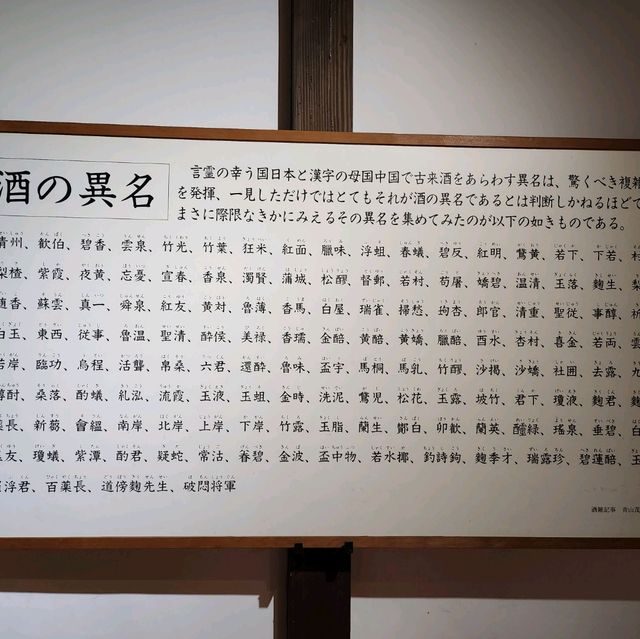 酒の異名
言霊の幸う国日本と漢字の母国中国で古来酒をあらわす異名は、驚くべき複雑
を発揮、一見しただけではとてもそれが酒の異名であるとは判断しかねるほどで
まさに際限なきかにみえるその異名を集めてみたのが以下の如きものである。
青州、歓伯、碧香、雲泉、竹光、竹葉、狂米、紅面、臘味、浮蛆、春蟻、碧友、紅明、鵞黄、若下、下若、村
梨楂、紫霞、夜黄、忘憂、宣春、香泉、濁賢、蒲城、松醪、督郵、若村、苟屠、嬌碧、温清、玉落、麴生、梨
随香、蘇雲、真一、舜泉、紅友、黄対、魯薄、香馬、白屋、瑞雀、掃愁、拘杏、郎官、清重、聖従、事醇、祈
白玉、東西、従事、魯温、聖清、酔侯、美禄、香瑞、金醅、黄醅、黄嬌、臘醅、西水、杏村、喜金、若両、雲
若岸、臨功、烏程、活聾、帛桑、六君、還酔、魯味、盃宇、馬桐、馬乳、竹醪、沙掲、沙嬌、社囲、去露、九
醇酎、桑落、酌蟻、乳泓、流霞、玉液、玉蛆、金時、洗泥、鵞児、松花、玉露、坡竹、君下、瓊液、麴君、麴
長、新蒭、會縕、南岸、北岸、上岸、下岸、竹露、玉脂、蘭生、鄫白、卯歓、蘭英、醽緑、瑤泉、垂碧、白
友、瓊蟻、紫潭、酌君、疑蛇、常沽、眷碧、金波、盃中物、若水椰、釣詩鉤、麴季才、瑞露珍、碧蓮醅、玉
浮君、百薬長、道傍麴先生、破悶将軍
酒雑記事　青山茂